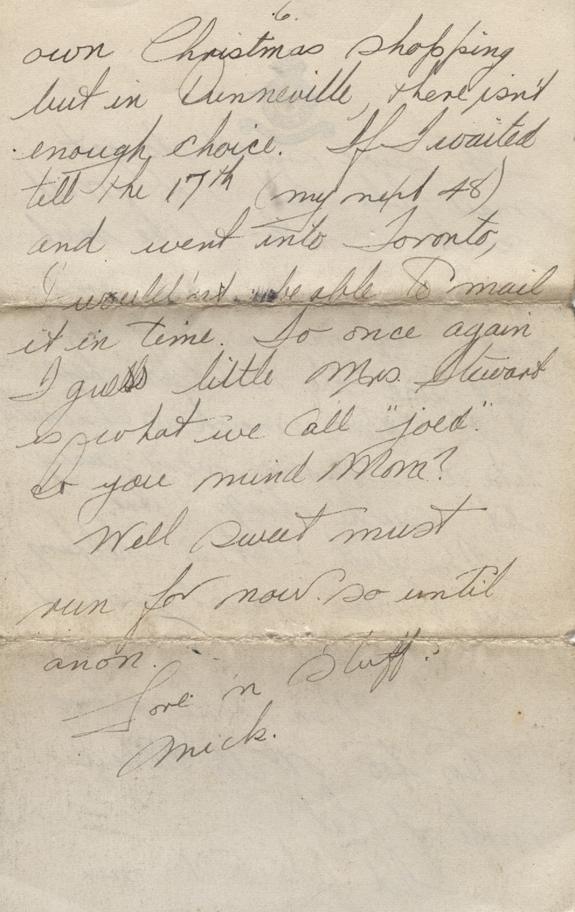 6.
own Christmas shopping
but in Dunneville, there isn't
enough choice. If I waited
till the 17th (my next 48)
and went into Toronto,
I would'nt be able to mail
it in time. So once again
I guess little Mrs. Stewart
is what we call "joed".
Do you mind Mom?
Well sweet must
run for now. so until
anon.
Love 'n Stuff:
Mick.